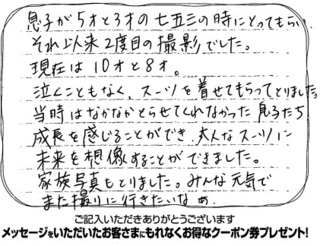 息子が5才と3才の七五三の時にとってもらい
それ以来2度目の撮影でした。
現在は10才と8才。
泣くこともなく、スーツを着せてもらってとりました。
当時はなかなかとらせてくれなかった息子たち
成長を感じることができ、大人なスーツに
未来を想像することができました。
家族写真もとりました。みんな元気で
また撮りに行きたいなぁ
ご記入いただきありがとうございます
メッセージをいただいたお客さまにもれなくお得なクーポン券プレゼント!